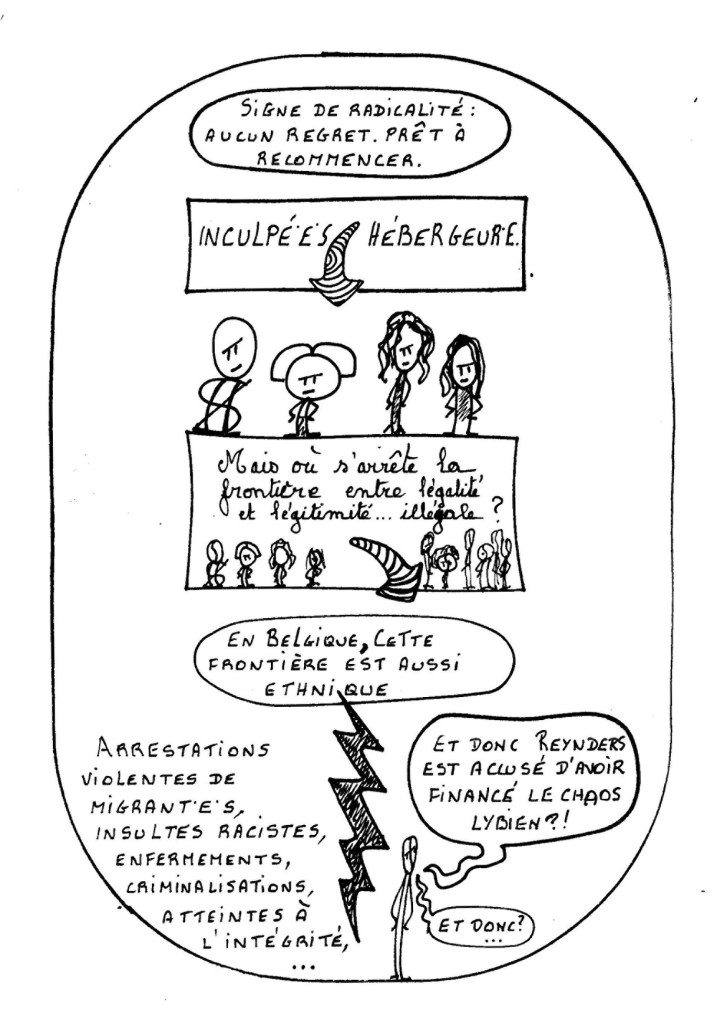 SIGNE DE RADICALITÉ :
AUCUN REGRET. PRÊT À
RECOMMENCER.
INCULPÉ·E·S HÉBERGEUR·E.
Mais où s'arrête la
frontière entre légalité
et légitimité... illégale ?
EN BELGIQUE, CETTE
FRONTIÈRE EST AUSSI
ETHNIQUE
ARRESTATIONS
VIOLENTES DE
MIGRANT·E·S,
INSULTES RACISTES,
ENFERMEMENTS,
CRIMINALISATIONS,
ATTEINTES À
L'INTÉGRITÉ,
...
ET DONC REYNDERS
EST ACCUSÉ D'AVOIR
FINANCÉ LE CHAOS
LYBIEN ?!
ET DONC?
...